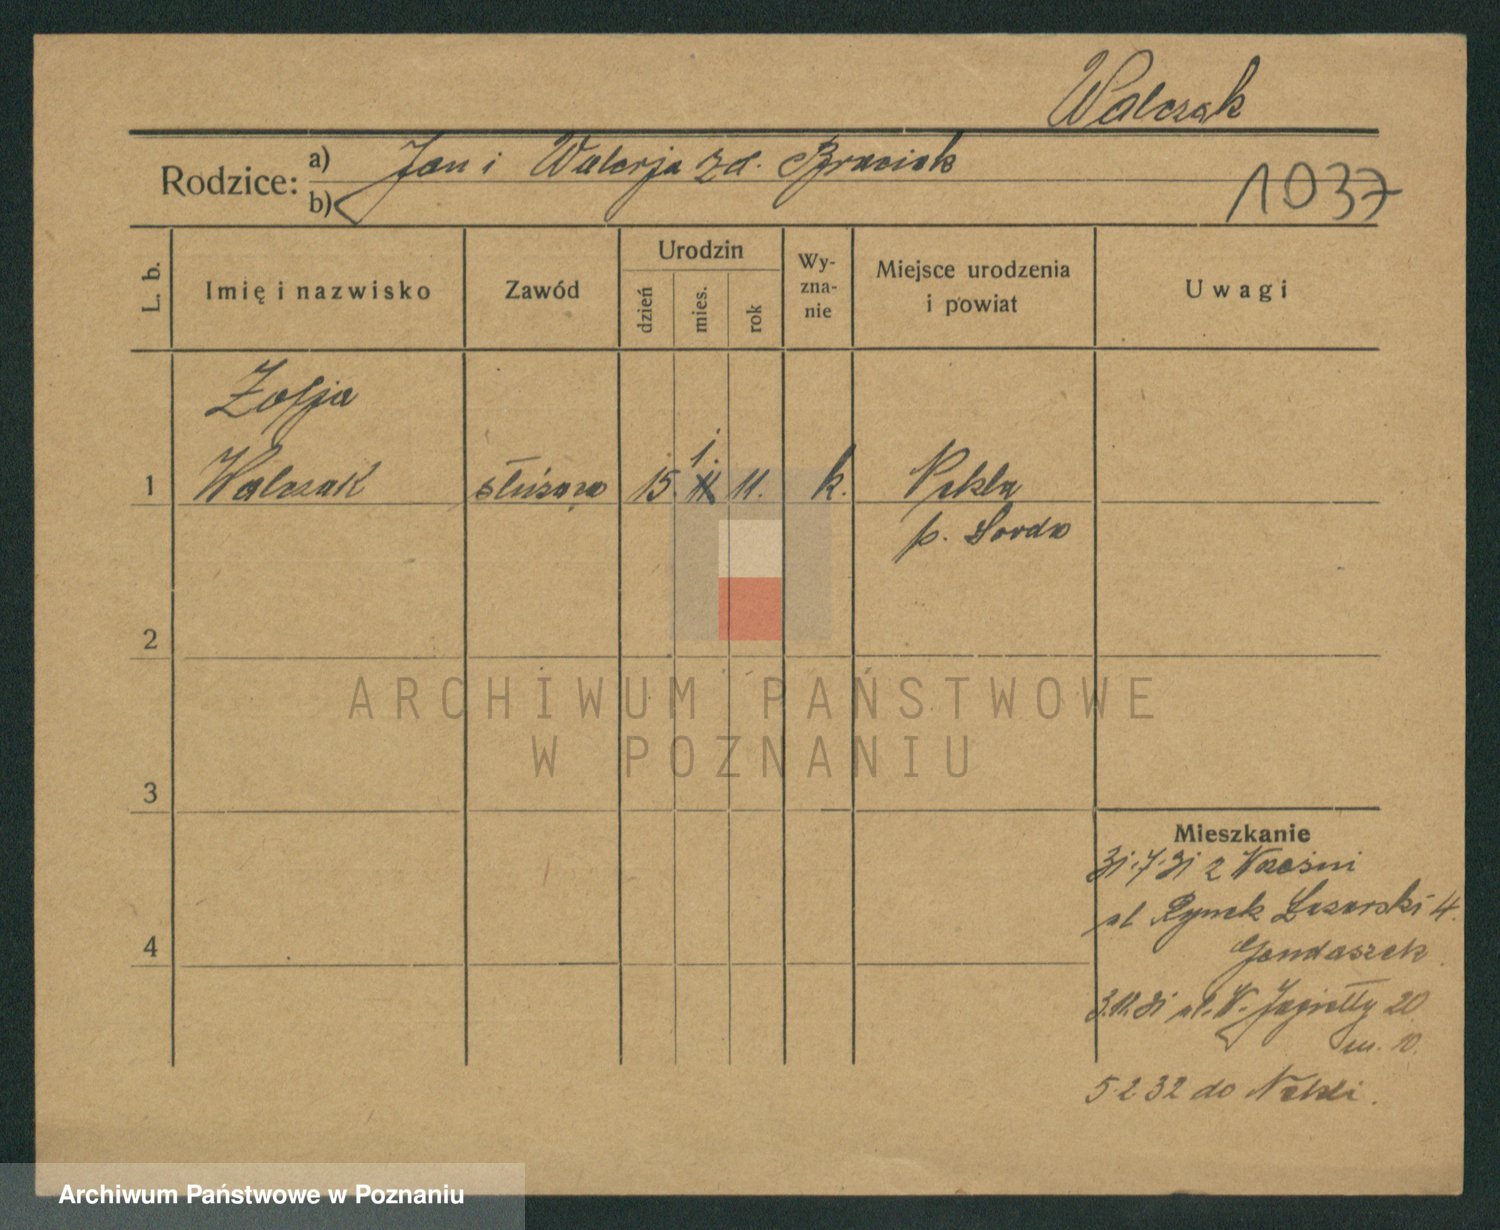 Walczak
Rodzice: a) Jan i Walerja zd.
b)
1037
L. b.
Imię i nazwisko
Zawód
Urodzin
dzień
mies.
rok
Wy-
zna-
nie
Miejsce urodzenia
i powiat
Uwagi
Zofja
1 Walczak służąca 15. 1. 11. k. Nekla
p. Środa
2
3
4
ARCHIWUM PAŃSTWOWE
W POZNANIU
Mieszkanie
31.7.31 z Wrześni
ul Rynek Łazarski 4.
3.11.31 ul. W. Jagiełły 20
m. 10.
5 2 32 do Nekli.
Archiwum Państwowe w Poznaniu